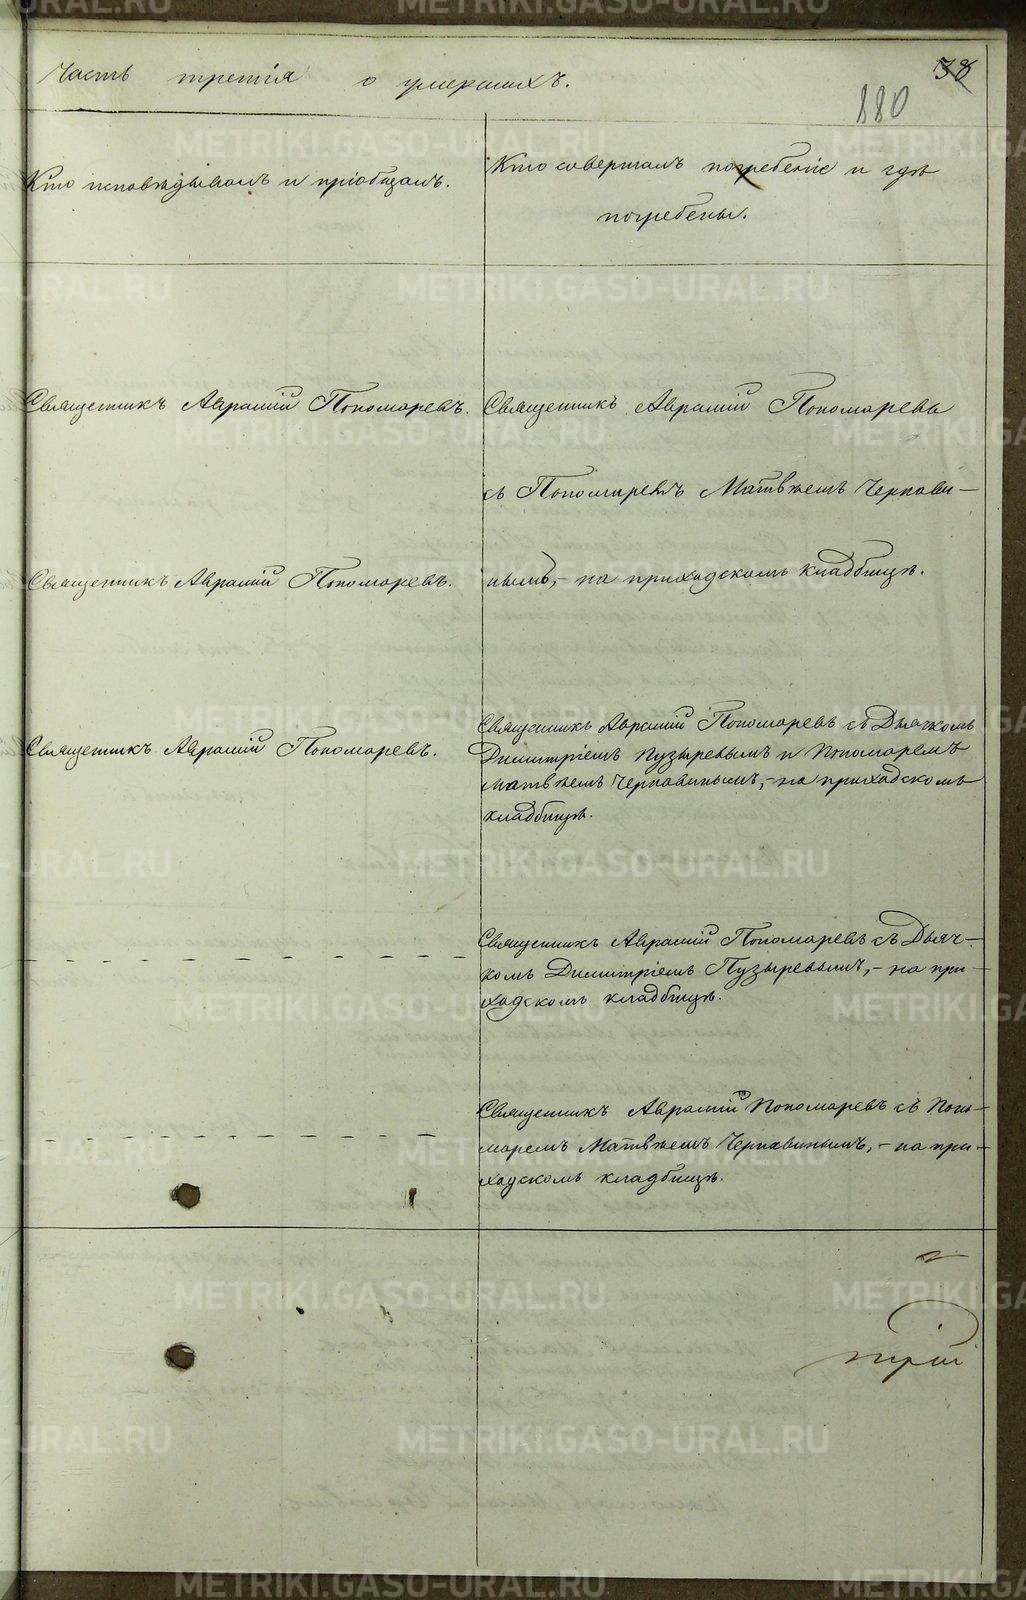 Часть третія о умершихъ.
38
880
Кто исповѣдывалъ и пріобщалъ.
Кто совершалъ погребеніе и гдѣ
погребены.
Священникъ Аврамій Пономаревъ.
Священникъ Аврамій Пономаревъ
съ Пономаремъ Матвѣемъ Чернави-
Священникъ Аврамій Пономаревъ.
нымъ,- на приходскомъ кладбищѣ.
Священникъ Аврамій Пономаревъ.
Священникъ Аврамій Пономаревъ съ Дьячкомъ
Димитріемъ Пузыревымъ и Пономаремъ
Матвѣемъ Чернавинымъ,- на приходскомъ
кладбищѣ.
Священникъ Аврамій Пономаревъ съ Дьяч-
комъ Димитріемъ Пузыревымъ,- на при-
ходскомъ кладбищѣ.
Священникъ Аврамій Пономаревъ съ Поно-
маремъ Матвѣемъ Чернавинымъ,- на при-
ходскомъ кладбищѣ.
METRIKI.GASO-URAL.RU